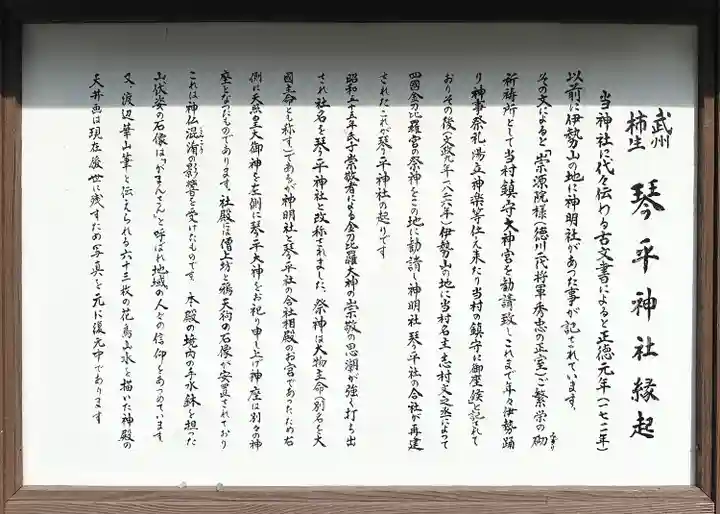 武州
柿生
琴平神社縁起
当神社に代々伝わる古文書によると正徳元年(一七一一年)
以前に伊勢山の地に神明社があった事が記されています。
その文によると「崇源院様(徳川二代将軍秀忠の正室)ご繁栄の砌
みぎり
祈祷所として当村鎮守大神宮を勧請致しこれまで年々伊勢踊
り神事祭礼湯立神楽等仕え来たり当村の鎮守に御座候」と記されて
おりその後文政九年(一八二六年)伊勢山の地に当村名主志村文之丞によって
四國金刀比羅宮の祭神をこの地に勧請し神明社琴平社の合社が再建
されたこれが琴平神社の起りです
昭和三十五年氏子崇敬者による金刀比羅大神の崇敬の思潮が強く打ち出
され社名を琴平神社と改称されました。祭神は大物主命(別名を大
國主命とも称す)であるが神明社と琴平社の合社相殿のお宮であったため右
側に天照皇大御神を左側に琴平大神をお祀り申し上げ神座は別々の神
座となったものであります。社殿には僧上坊と鴉天狗の石像が安置されており
これは神仏混淆の影響を受けたものです。本殿の境内の手水鉢を担った
山伏姿の石像は「がまんさん」と呼ばれ地域の人々の信仰をあつめています
又、渡辺華山筆と伝えられる六十三枚の花鳥山水を描いた神殿の
天井画は現在後世に残すため写真を元に復元中であります